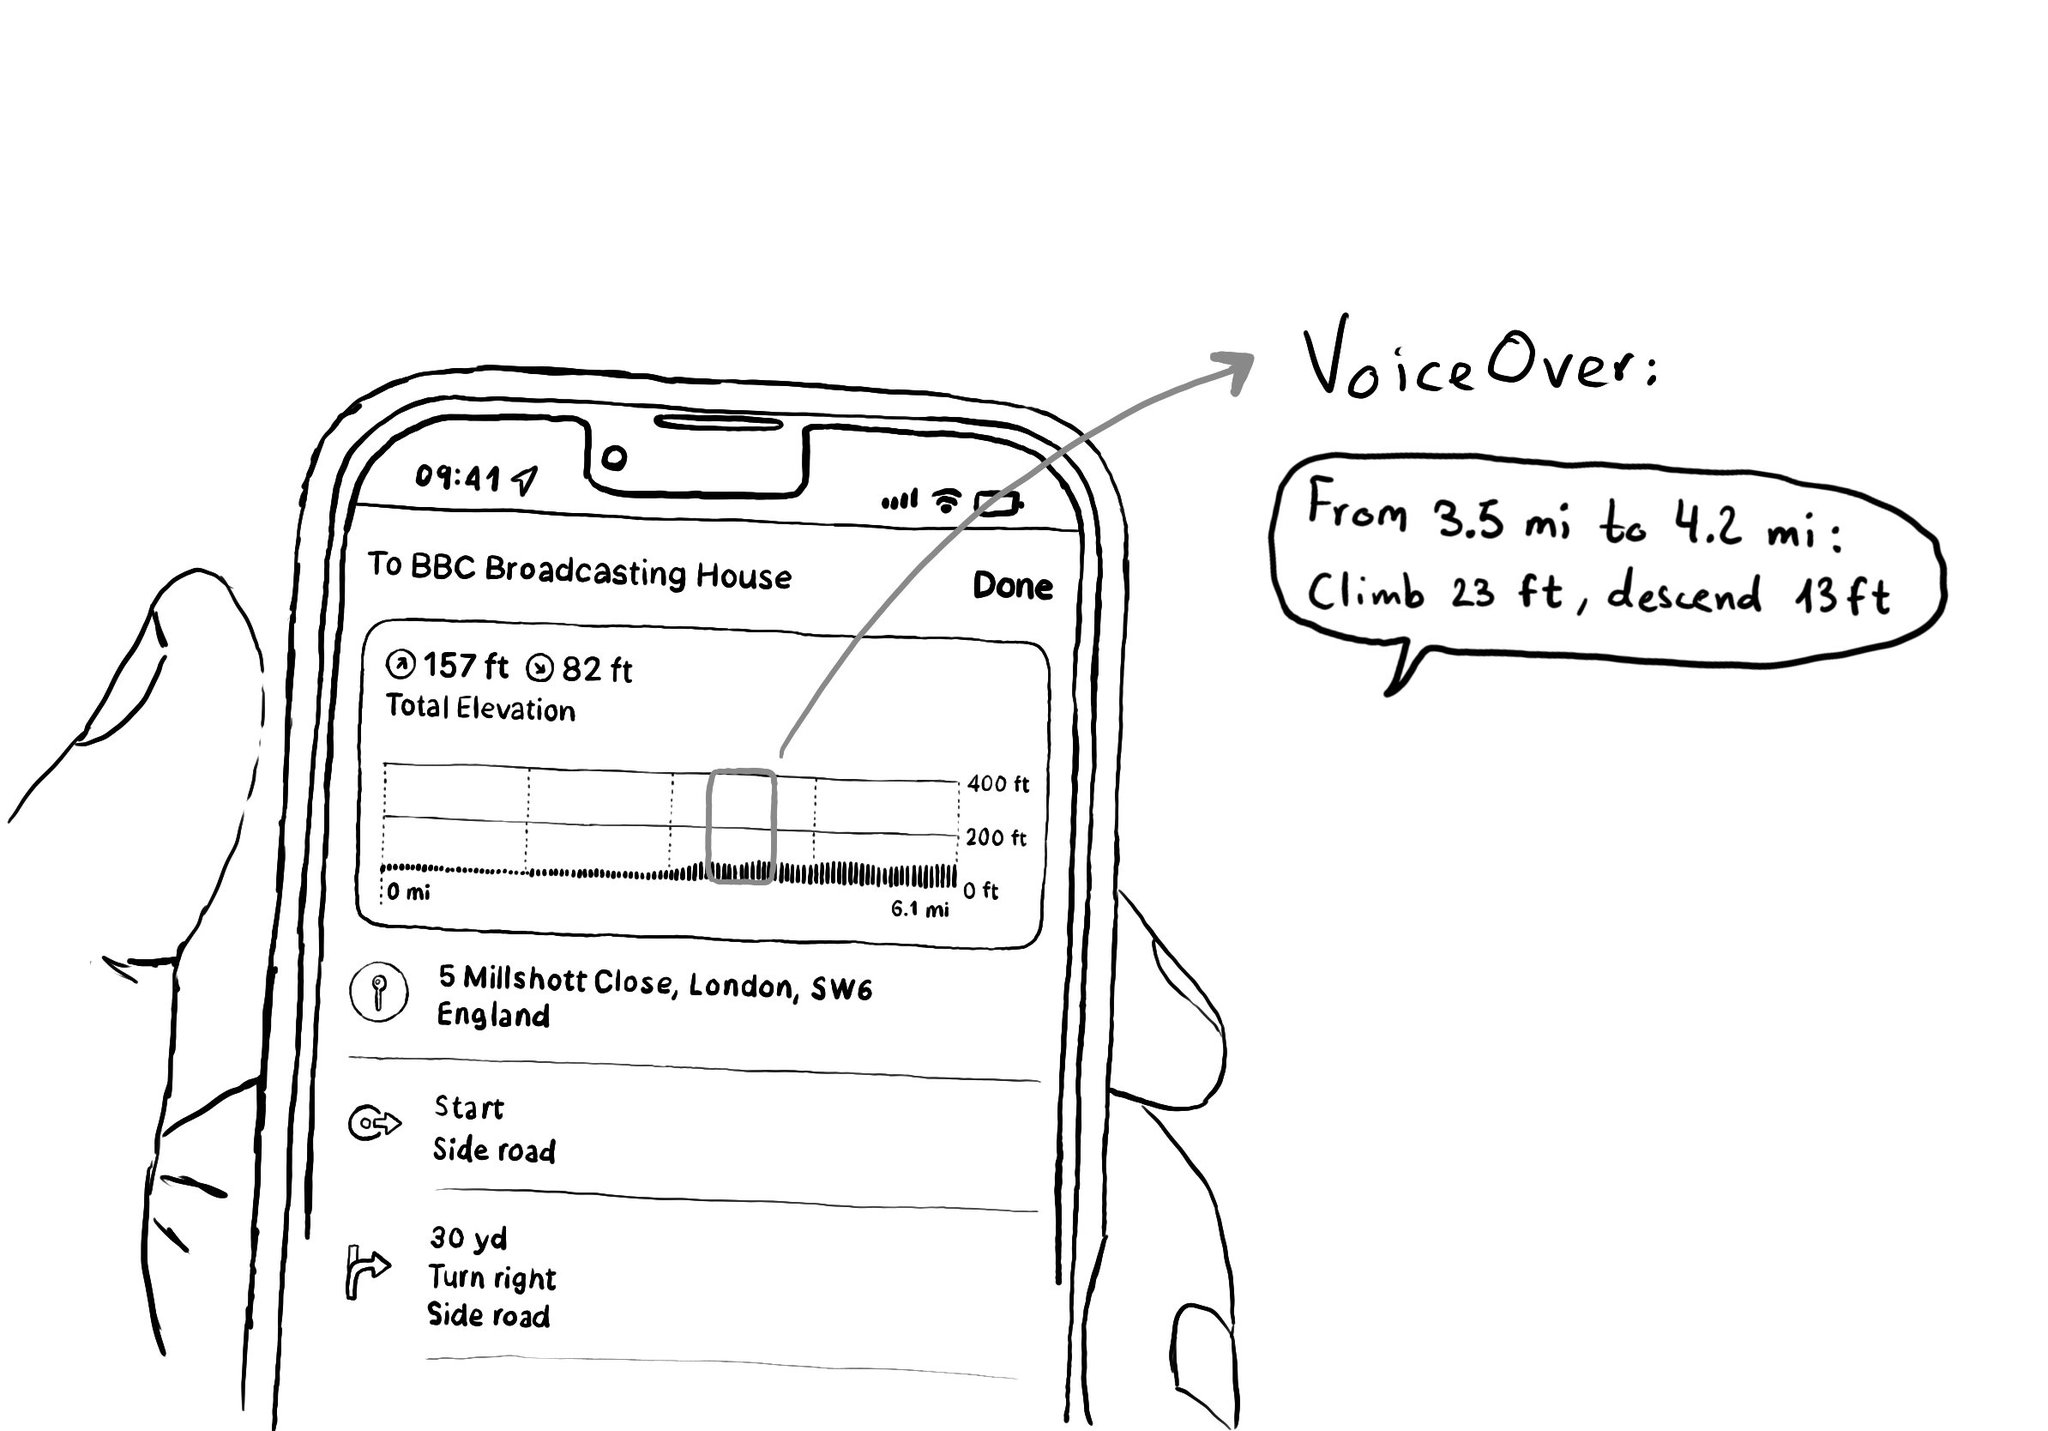 09:41
To BBC Broadcasting House
Done
157 ft 82 ft
Total Elevation
400 ft
200 ft
0 ft
0 mi
6.1 mi
5 Millshott Close, London, SW6
England
Start
Side road
30 yd
Turn right
Side road
VoiceOver:
From 3.5 mi to 4.2 mi:
Climb 23 ft, descend 13ft